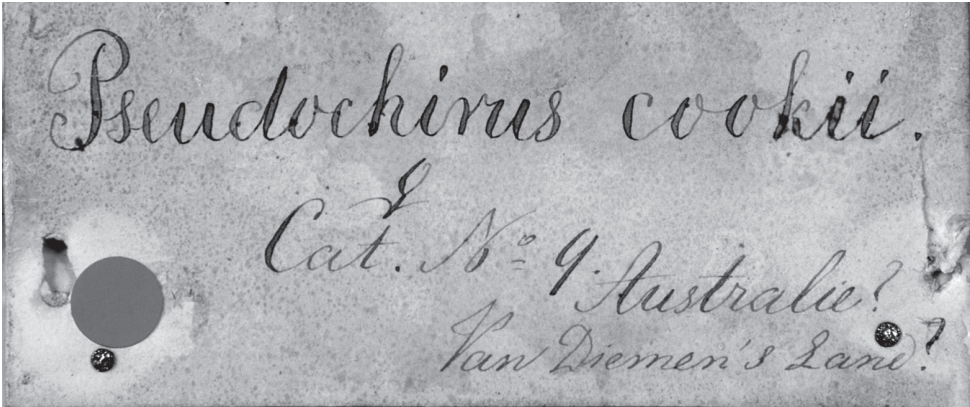 Pseudochirus cookii.
♀
Cat. No 9. Australie?
Van Diemen's Land? ?